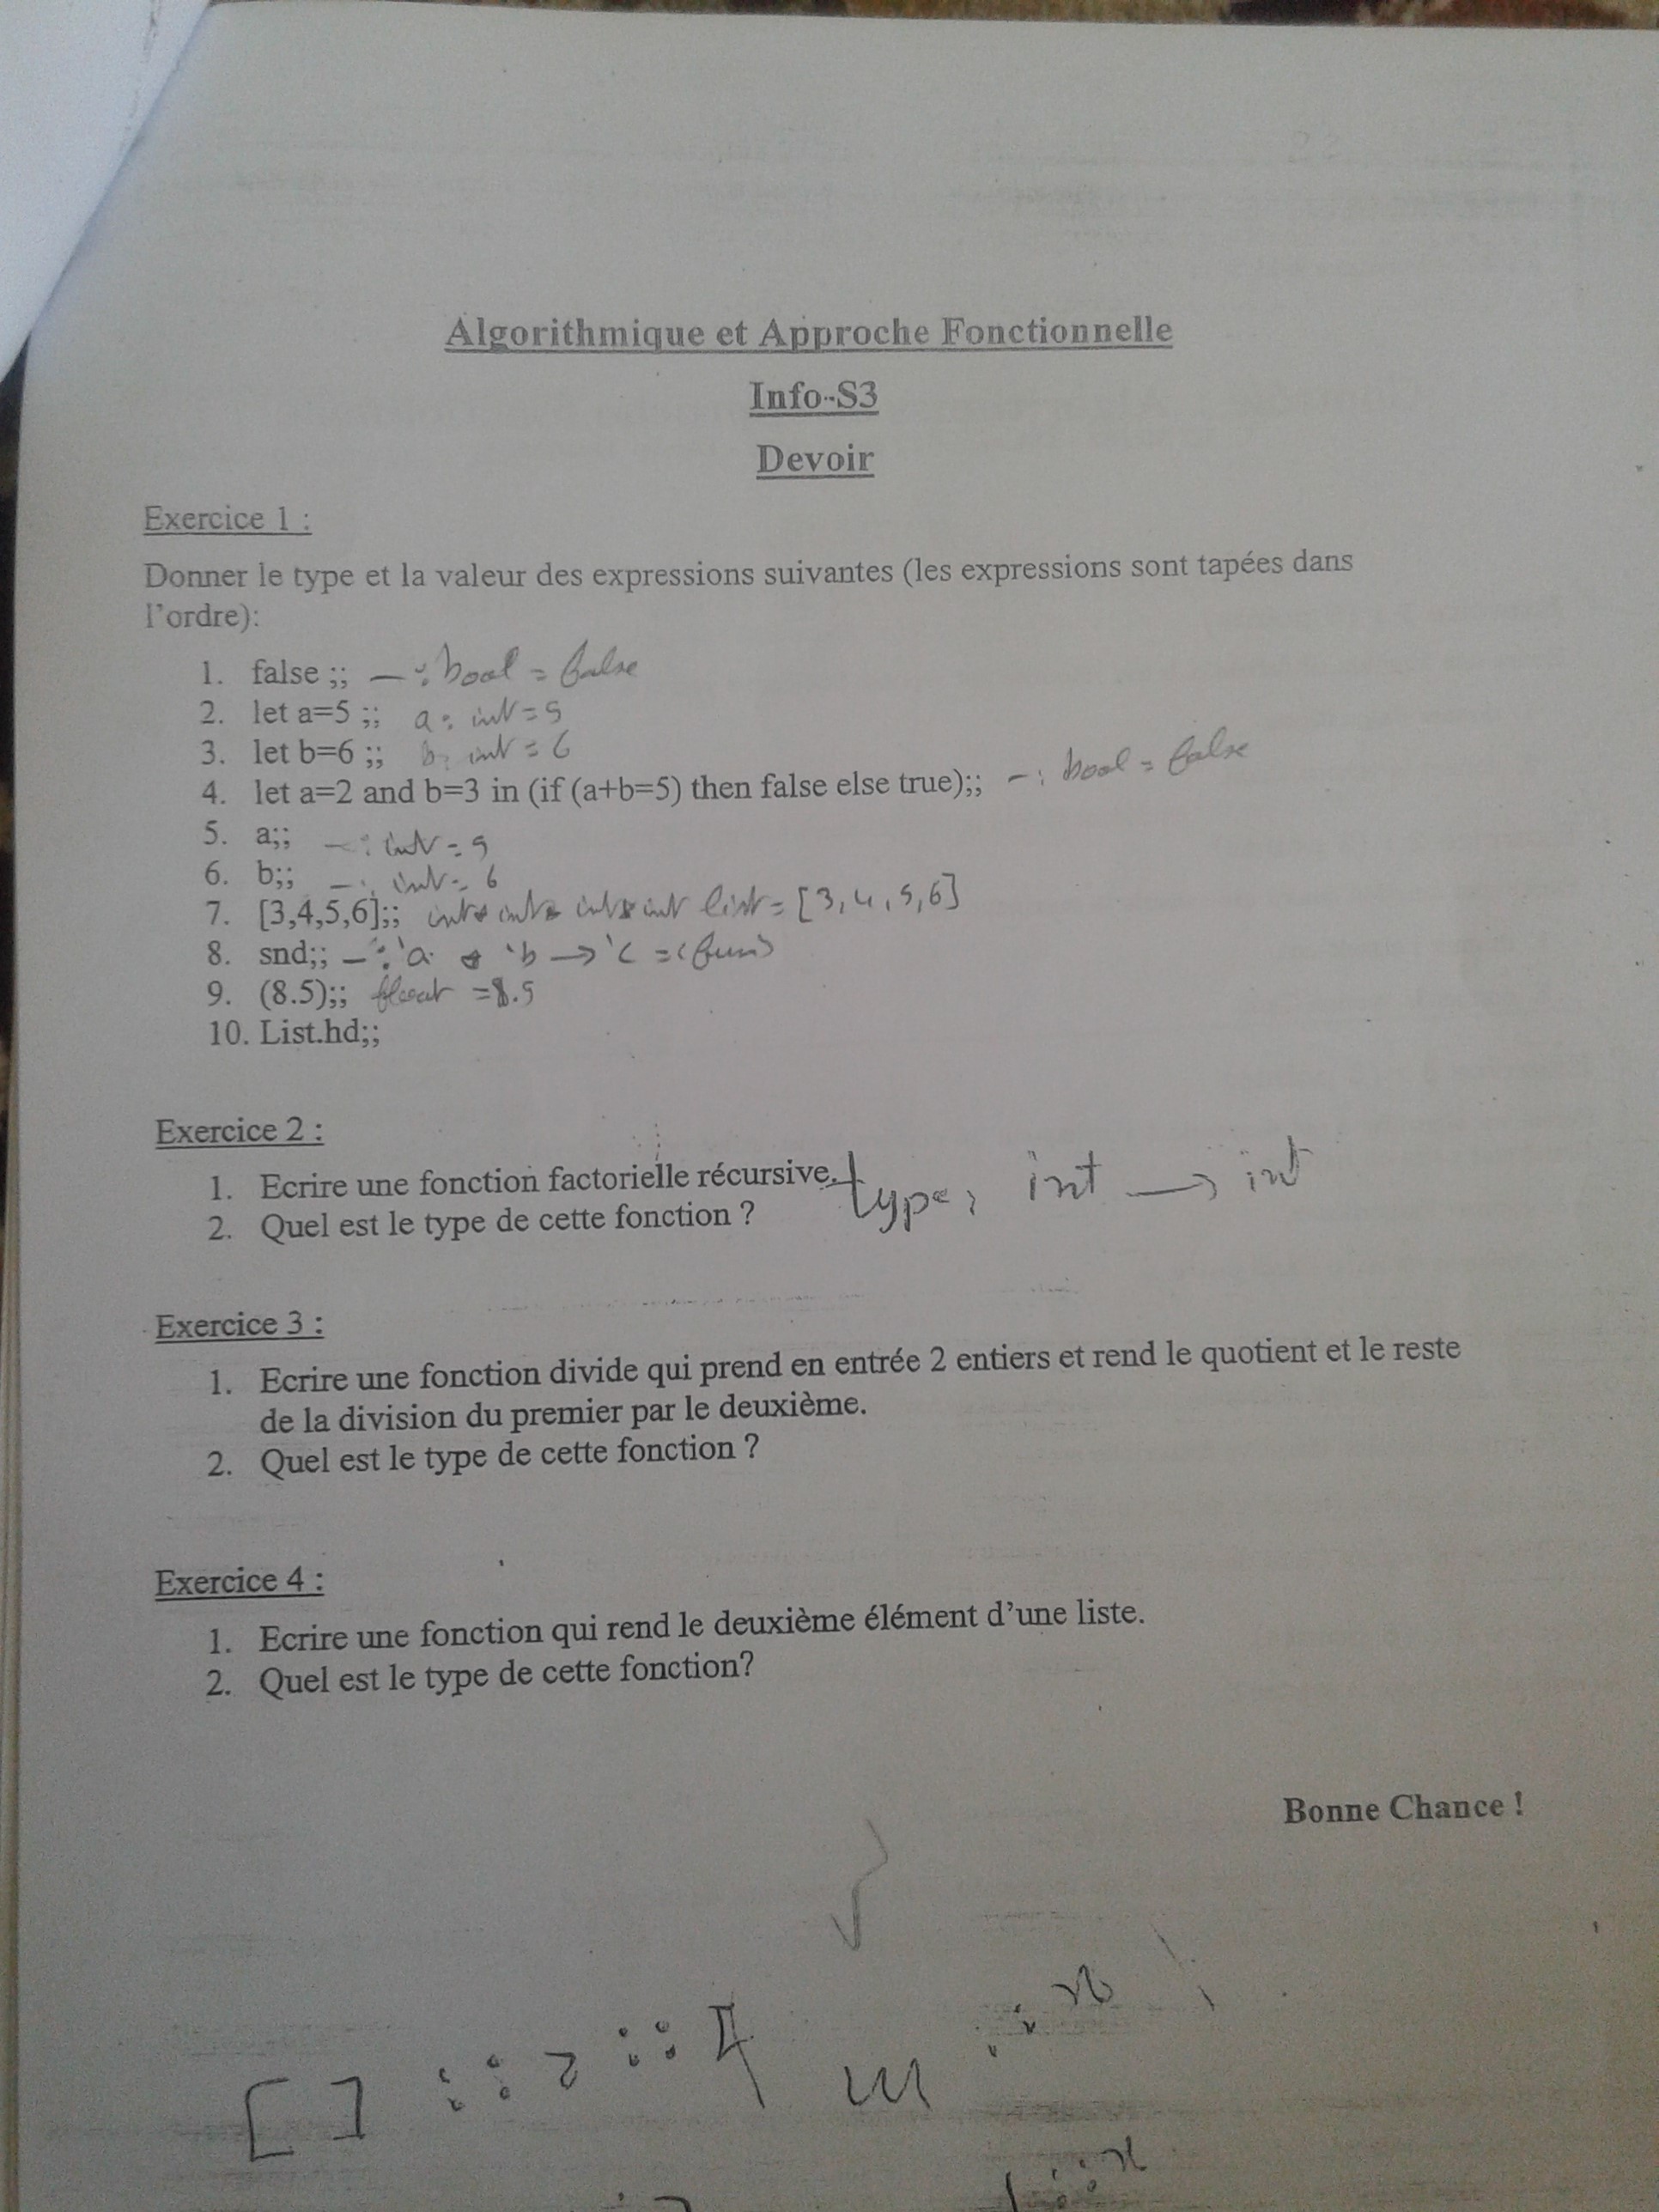 Algorithmique et Approche Fonctionnelle
Info-S3
Devoir
Exercice 1 :
Donner le type et la valeur des expressions suivantes (les expressions sont tapées dans
l'ordre):
1. false ;; — : bool = false
2. let a=5 ;; a : int = 5
3. let b=6 ;; b : int = 6
4. let a=2 and b=3 in (if (a+b=5) then false else true);; - : bool = false
5. a;; — : int = 5
6. b;; — : int = 6
7. [3,4,5,6];; int * int * int * int list = [3,4,5,6]
8. snd;; — : 'a * 'b -> 'c = (fun)
9. (8.5);; float = 8.5
10. List.hd;;
Exercice 2 :
1. Ecrire une fonction factorielle récursive. type, int → int
2. Quel est le type de cette fonction ?
Exercice 3 :
1. Ecrire une fonction divide qui prend en entrée 2 entiers et rend le quotient et le reste
de la division du premier par le deuxième.
2. Quel est le type de cette fonction ?
Exercice 4 :
1. Ecrire une fonction qui rend le deuxième élément d'une liste.
2. Quel est le type de cette fonction?
Bonne Chance !
[ ] ::